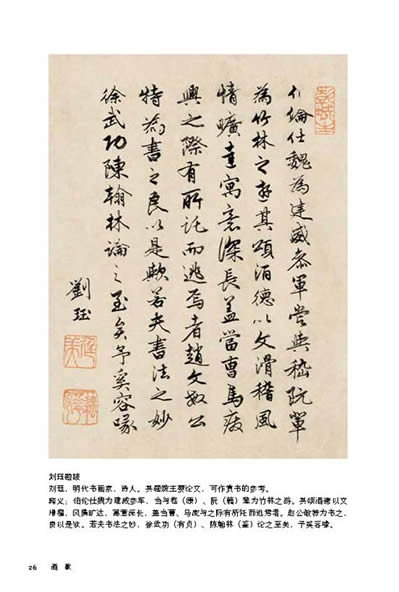 伯倫仕魏為建威參軍嘗與嵇阮輩
為竹林之遊其頌酒德以文滑稽風
情曠達寓意深長蓋當曹馬廢
興之際有所託而逃焉者趙文敏公
特為書之良以是歟若夫書法之妙
徐武功陳翰林論之至矣予奚容喙
劉珏
廷美
刘珏题跋
刘珏，明代书画家，诗人。其题跋主要论文，可作赏书的参考。
释义：伯伦仕魏为建威参军，尝与嵇（康）、阮（籍）辈为竹林之游。其颂酒德以文
滑稽，风情旷达，寓意深长，盖当曹、马废与之际有所托而逃焉者。赵公敏特为书之，
良以是欤。若夫书法之妙，徐武功（有贞）、陈翰林（鉴）论之至矣，予奚容喙。
26 酒歌